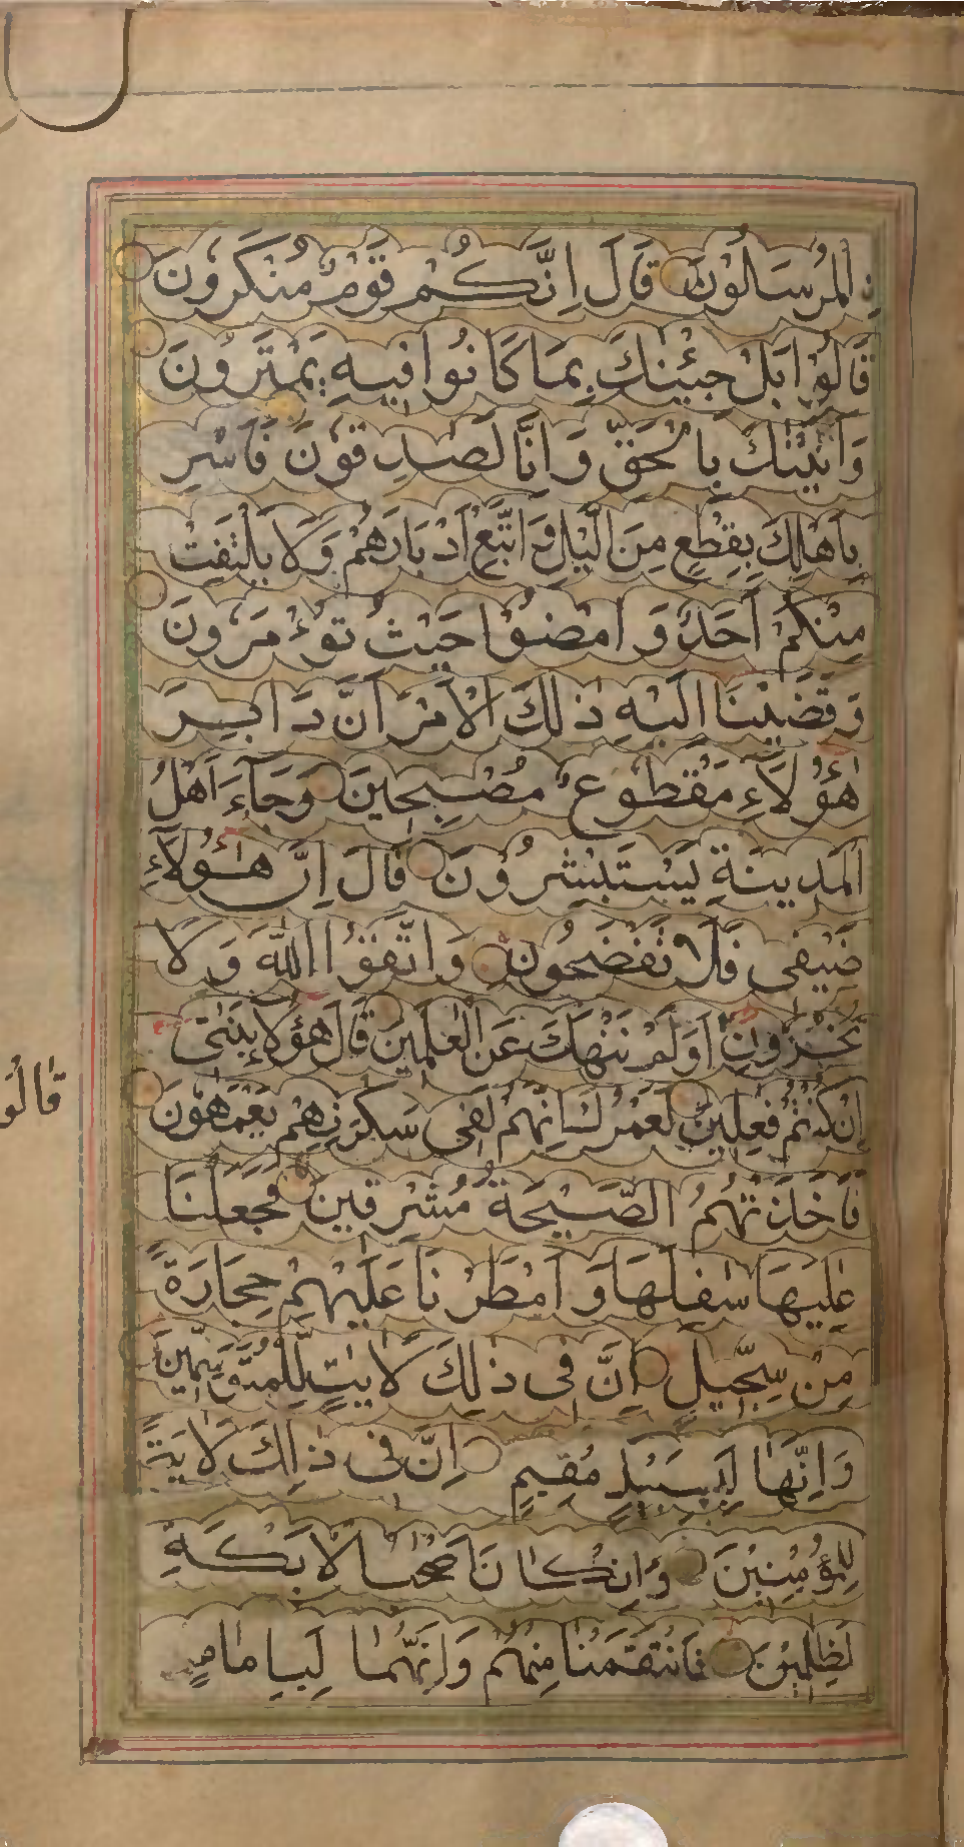 الْمُرْسَلُوْنَ قَالَ اِنَّكُمْ قَوْمٌ مُنْكَرُونَ
قَالُوْا بَلْ جِئْنٰكَ بِمَا كَانُوْا فِيهِ يَمْتَرُوْنَ
وَاَتَيْنٰكَ بِالْحَقِّ وَاِنَّا لَصٰدِقُوْنَ فَاَسْرِ
بِاَهْلِكَ بِقِطْعٍ مِنَ الَّيْلِ وَاتَّبِعْ اَدْبَارَهُمْ وَلَا يَلْتَفِتْ
مِنْكُمْ اَحَدٌ وَامْضُوْا حَيْثُ تُوْءْمَرُوْنَ
وَقَضَيْنَا اِلَيْهِ ذٰلِكَ الْاَمْرَ اَنَّ دَابِرَ
هٰؤُلَآءِ مَقْطُوعٌ مُصْبِحِيْنَ وَجَآءَ اَهْلُ
الْمَدِيْنَةِ يَسْتَبْشِرُوْنَ قَالَ اِنَّ هٰؤُلَآءِ
ضَيْفِى فَلَا تَفْضَحُوْنِ وَاتَّقُوْا اللّٰهَ وَلَا
تُخْزُوْنِ اَوَلَمْ نَنْهَكَ عَنِ الْعٰلَمِيْنَ قَالَ هٰؤُلَآءِ بَنٰتِى
اِنْ كُنْتُمْ فٰعِلِيْنَ لَعَمْرُكَ اِنَّهُمْ لَفِى سَكْرَتِهِمْ يَعْمَهُوْنَ
فَاَخَذَتْهُمُ الصَّيْحَةُ مُشْرِقِيْنَ فَجَعَلْنَا
عٰلِيَهَا سٰفِلَهَا وَاَمْطَرْنَا عَلَيْهِمْ حِجَارَةً
مِنْ سِجِّيلٍ اِنَّ فِى ذٰلِكَ لَاٰيٰتٍ لِّلْمُتَوَسِّمِيْنَ
وَاِنَّهَا لَبِسَبِيلٍ مُقِيمٍ اِنَّ فِى ذٰلِكَ لَاٰيَةً
لِلْمُؤْمِنِيْنَ وَاِنْ كَانَ اَصْحٰبُ الْاَيْكَةِ
لَظٰلِمِيْنَ فَانْتَقَمْنَا مِنْهُمْ وَاِنَّهُمَا لَبِاِمَامٍ
قَالُو